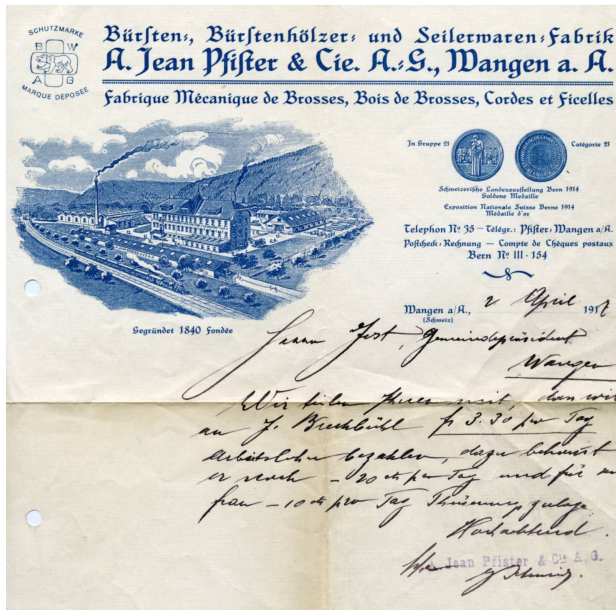 SCHUTZMARKE
B W
A G
MARQUE DÉPOSÉE
Bürsten-, Bürstenhölzer- und Seilerwaren-Fabrik
A. Jean Pfister & Cie. A.-G., Wangen a. A.
Fabrique Mécanique de Brosses, Bois de Brosses, Cordes et Ficelles
In Gruppe 21
Catégorie 21
Schweizerische Landesausstellung Bern 1914
Goldene Medaille
Exposition Nationale Suisse Berne 1914
Médaille d'or
Telephon No 35 – Télégr.: Pfister-Wangen a/A.
Postcheck-Rechnung – Compte de Chèques postaux
Bern No III - 154
Wangen a/A., 2 April 191
(Schweiz)
Gegründet 1840 Fondée
Herrn Jost, Gemeindepräsident
Wangen
Wir teilen Ihnen mit, dass wir
an J. Brechbühl fr 3.30 pro Tag
Arbeitslohn bezahlen, dazu bekommt
er noch – 20 cts per Tag und für
frau – 10 cts pro Tag Theuerungszulage.
Hochachtend.
A. Jean Pfister & Cie A. G.